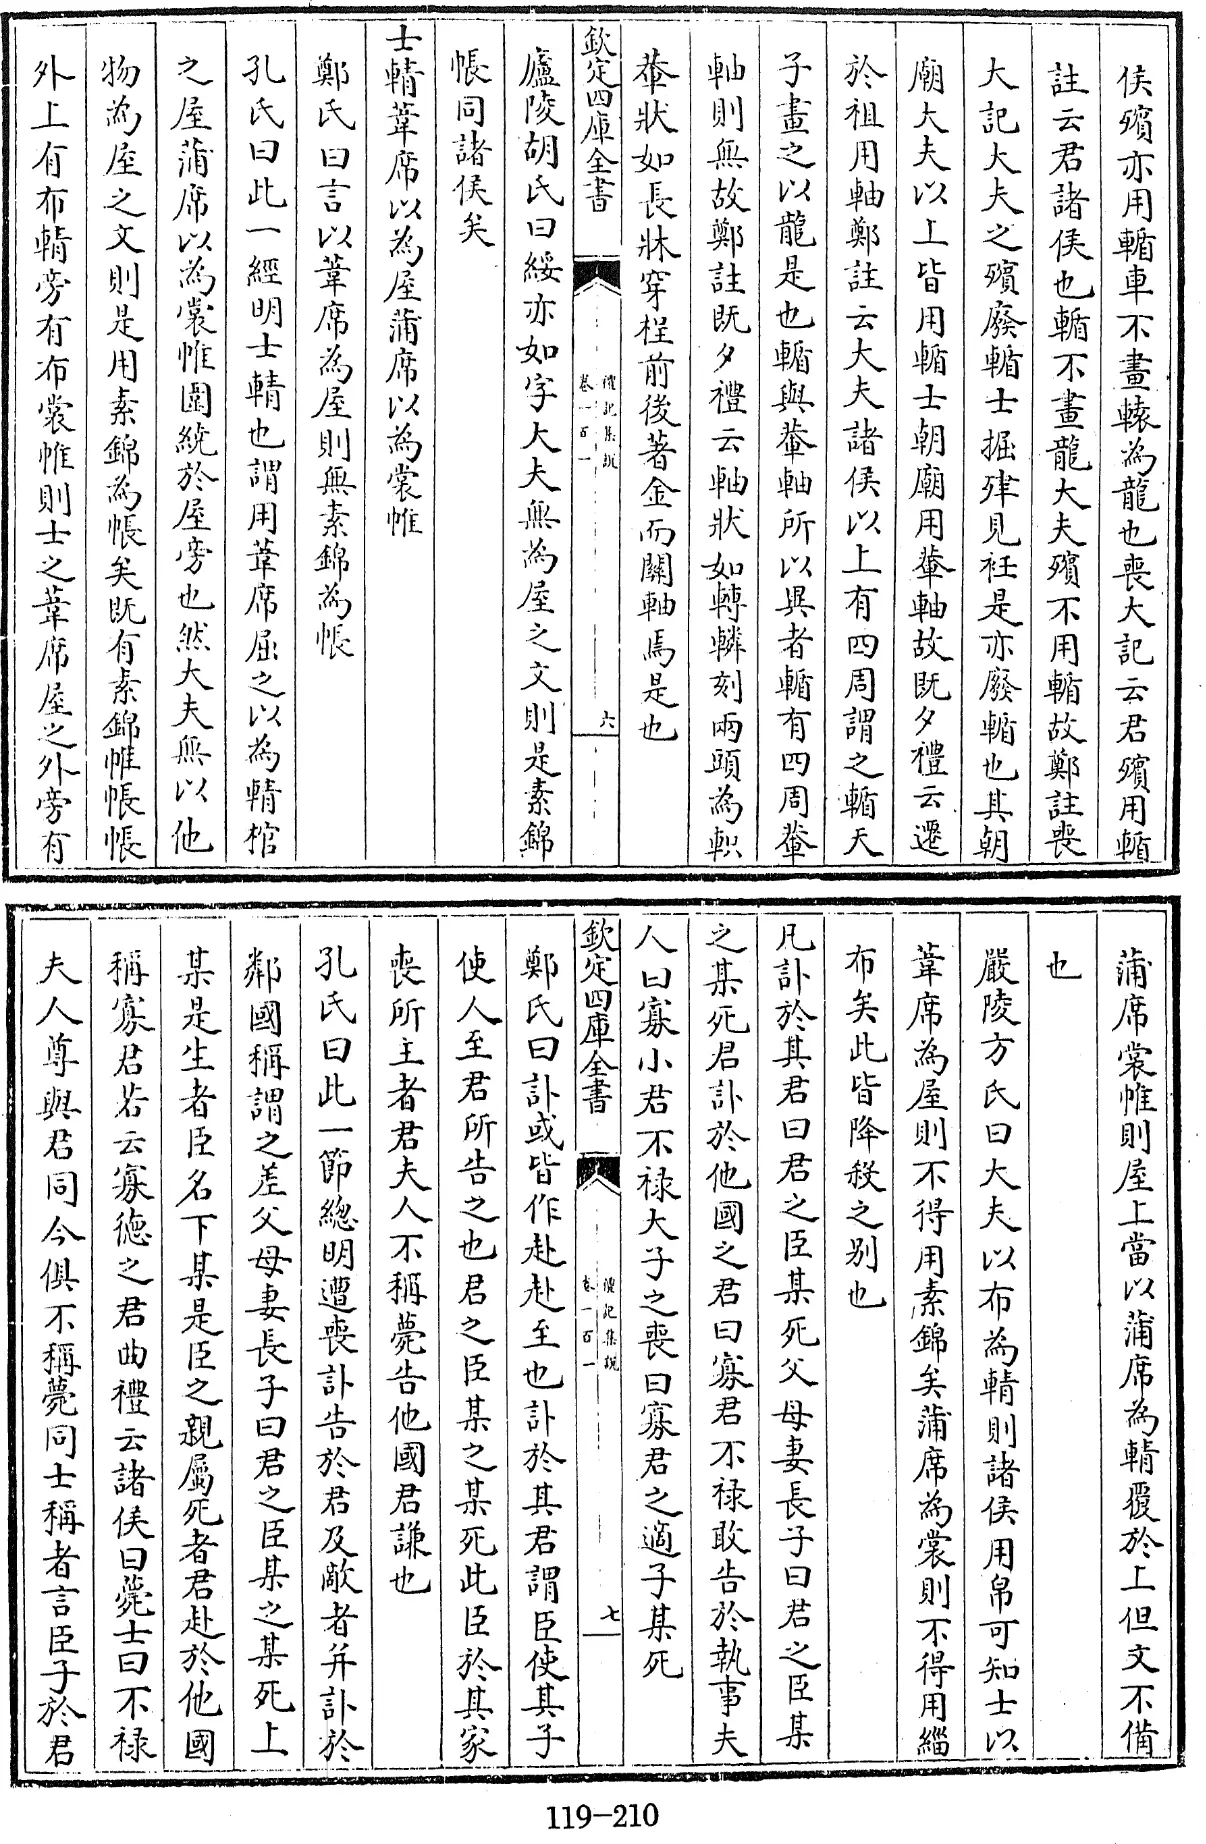 侯殯亦用輴車不畫轅為龍也喪大記云君殯用輴
註云君諸侯也輴不畫龍大夫殯不用輴故鄭註喪
大記大夫之殯廢輴士掘肂見衽是亦廢輴也其朝
廟大夫以上皆用輴士朝廟用輁軸故既夕禮云遷
於祖用軸鄭註云大夫諸侯以上有四周謂之輴天
子畫之以龍是也輴與輁軸所以異者輴有四周輁
軸則無故鄭註既夕禮云軸狀如轉轔刻兩頭為軹
輁狀如長牀穿桯前後著金而關軸焉是也
欽定四庫全書
禮記集說
卷一百一
六
廬陵胡氏曰綏亦如字大夫無為屋之文則是素錦
帳同諸侯矣
士輤葦席以為屋蒲席以為裳帷
鄭氏曰言以葦席為屋則無素錦為帳
孔氏曰此一經明士輤也謂用葦席屈之以為輤棺
之屋蒲席以為裳帷圍繞於屋旁也然大夫無以他
物為屋之文則是用素錦為帳矣既有素錦帷帳帳
外上有布輤旁有布裳帷則士之葦席屋之外旁有
蒲席裳帷則屋上當以蒲席為輤覆於上但文不備
也
嚴陵方氏曰大夫以布為輤則諸侯用帛可知士以
葦席為屋則不得用素錦矣蒲席為裳則不得用緇
布矣此皆降殺之别也
凡訃於其君曰君之臣某死父母妻長子曰君之臣某
之某死君訃於他國之君曰寡君不祿敢告於執事夫
人曰寡小君不祿大子之喪曰寡君之適子某死
欽定四庫全書
禮記集說
卷一百一
七
鄭氏曰訃或皆作赴赴至也訃於其君謂臣使其子
使人至君所告之也君之臣某之某死此臣於其家
喪所主者君夫人不稱薨告他國君謙也
孔氏曰此一節總明遭喪訃告於君及敵者并訃於
鄰國稱謂之差父母妻長子曰君之臣某之某死上
某是生者臣名下某是臣之親屬死者君赴於他國
稱寡君若云寡德之君曲禮云諸侯曰薨士曰不祿
夫人尊與君同今俱不稱薨同士稱者言臣子於君
119-210